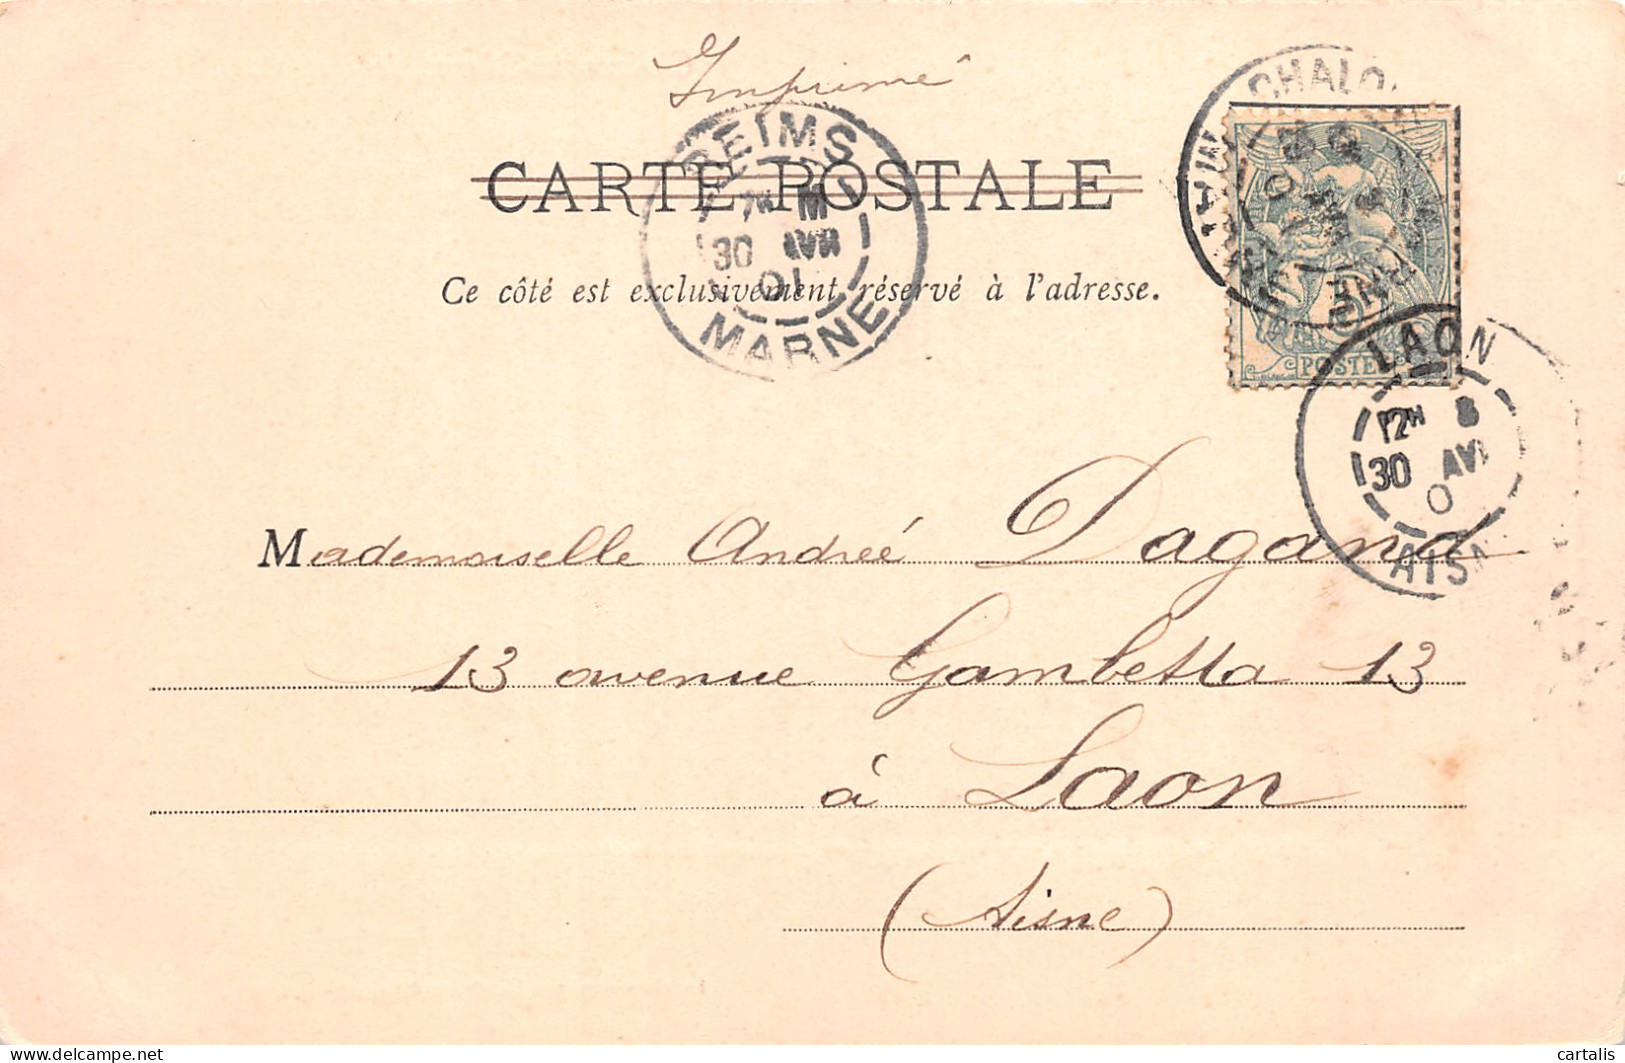 Imprimé
CARTE POSTALE
Ce côté est exclusivement réservé à l'adresse.
REIMS
7H M
30 AVR
01
MARNE
CHALO
MAR
POSTES
LAON
12H 8
30 AV
0
AISN
Mademoiselle Andrée Dagand
13 avenue Gambetta 13
à Laon
(Aisne)
delcampe.net
cartalis